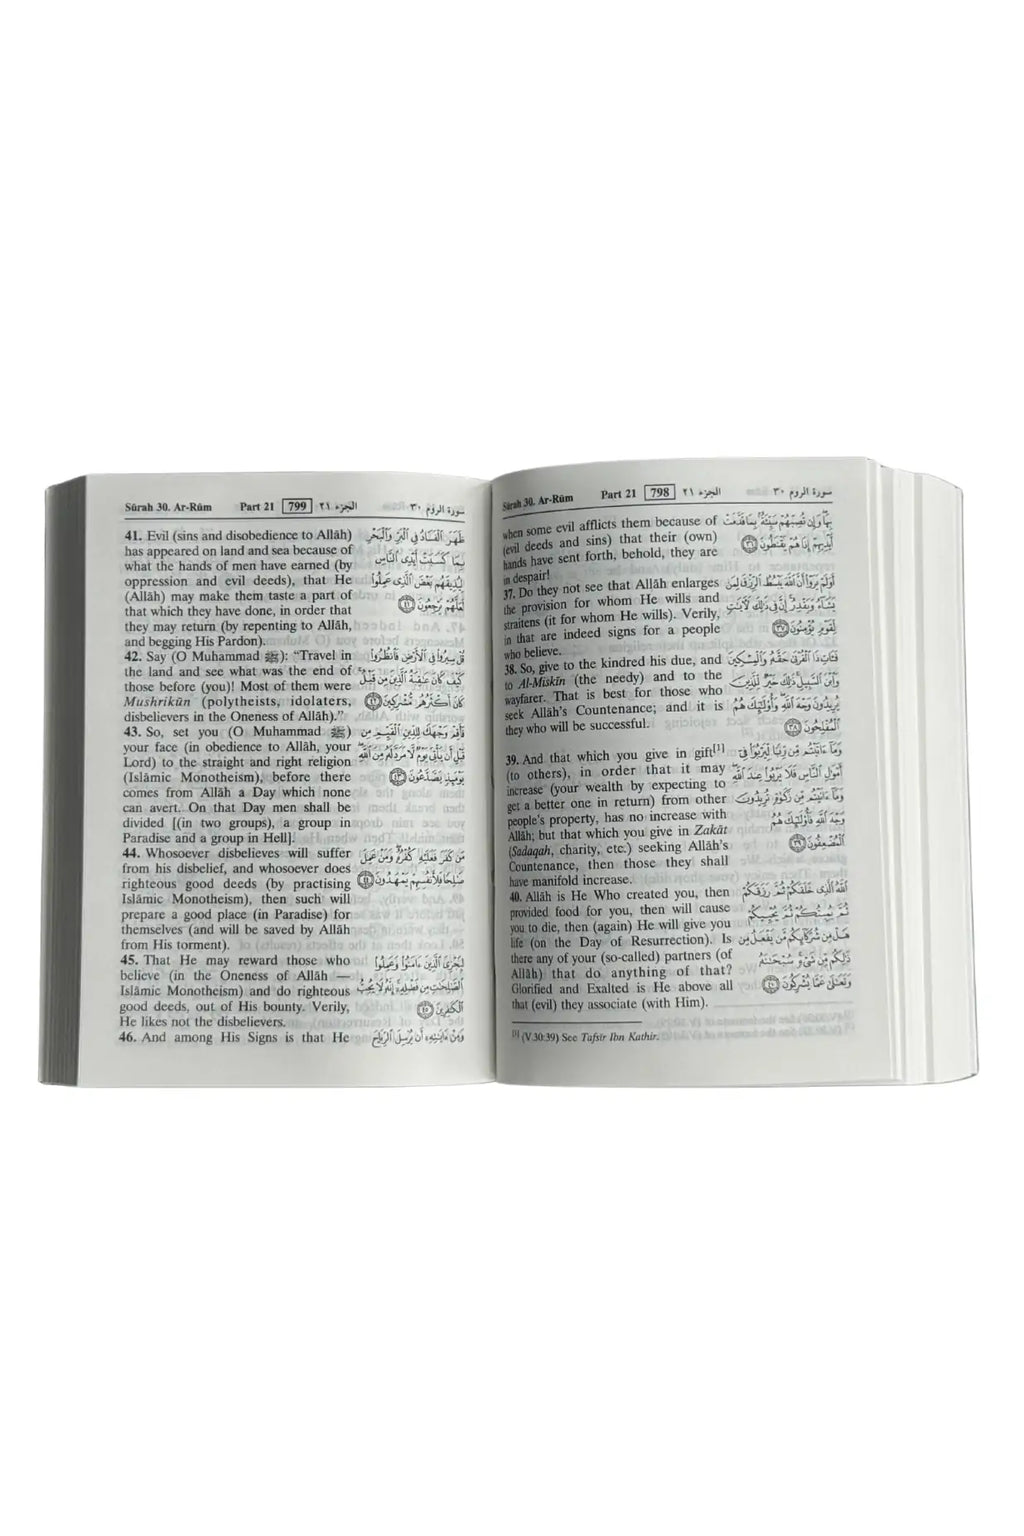 Sûrah 30. Ar-Rûm Part 21 798 الجزء ٢١ سورة الروم ٣٠
when some evil afflicts them because of
(evil deeds and sins) that their (own)
hands have sent forth, behold, they are
in despair!
37. Do they not see that Allâh enlarges
the provision for whom He wills and
straitens (it for whom He wills). Verily,
in that are indeed signs for a people
who believe.
38. So, give to the kindred his due, and
to Al-Miskîn (the needy) and to the
wayfarer. That is best for those who
seek Allâh's Countenance; and it is
they who will be successful.
39. And that which you give in gift[1]
(to others), in order that it may
increase (your wealth by expecting to
get a better one in return) from other
people's property, has no increase with
Allâh; but that which you give in Zakât
(Sadaqah, charity, etc.) seeking Allâh's
Countenance, then those they shall
have manifold increase.
40. Allâh is He Who created you, then
provided food for you, then will cause
you to die, then (again) He will give you
life (on the Day of Resurrection). Is
there any of your (so-called) partners (of
Allâh) that do anything of that?
Glorified and Exalted is He above all
that (evil) they associate (with Him).
بِهَا وَإِن تُصِبْهُمْ سَيِّئَةٌۢ بِمَا قَدَّمَتْ
أَيْدِيهِمْ إِذَا هُمْ يَقْنَطُونَ ٣٦
أَوَلَمْ يَرَوْا أَنَّ ٱللَّهَ يَبْسُطُ ٱلرِّزْقَ لِمَن
يَشَآءُ وَيَقْدِرُ إِنَّ فِى ذَٰلِكَ لَـَٔايَـٰتٍ
لِّقَوْمٍ يُؤْمِنُونَ ٣٧
فَـَٔاتِ ذَا ٱلْقُرْبَىٰ حَقَّهُۥ وَٱلْمِسْكِينَ
وَٱبْنَ ٱلسَّبِيلِ ذَٰلِكَ خَيْرٌ لِّلَّذِينَ
يُرِيدُونَ وَجْهَ ٱللَّهِ وَأُو۟لَـٰٓئِكَ هُمُ
ٱلْمُفْلِحُونَ ٣٨
وَمَآ ءَاتَيْتُم مِّن رِّبًا لِّيَرْبُوَا۟ فِىٓ
أَمْوَٰلِ ٱلنَّاسِ فَلَا يَرْبُوا۟ عِندَ ٱللَّهِ
وَمَآ ءَاتَيْتُم مِّن زَكَوٰةٍ تُرِيدُونَ
وَجْهَ ٱللَّهِ فَأُو۟لَـٰٓئِكَ هُمُ
ٱلْمُضْعِفُونَ ٣٩
ٱللَّهُ ٱلَّذِى خَلَقَكُمْ ثُمَّ رَزَقَكُمْ
ثُمَّ يُمِيتُكُمْ ثُمَّ يُحْيِيكُمْ
هَلْ مِن شُرَكَآئِكُم مَّن يَفْعَلُ مِن
ذَٰلِكُم مِّن شَىْءٍ سُبْحَـٰنَهُۥ
وَتَعَـٰلَىٰ عَمَّا يُشْرِكُونَ ٤٠
[1] (V.30:39) See Tafsir Ibn Kathir.
Sûrah 30. Ar-Rûm Part 21 799 الجزء ٢١ سورة الروم ٣٠
41. Evil (sins and disobedience to Allâh)
has appeared on land and sea because of
what the hands of men have earned (by
oppression and evil deeds), that He
(Allâh) may make them taste a part of
that which they have done, in order that
they may return (by repenting to Allâh,
and begging His Pardon).
42. Say (O Muhammad ﷺ): “Travel in
the land and see what was the end of
those before (you)! Most of them were
Mushrikûn (polytheists, idolaters,
disbelievers in the Oneness of Allâh).”
43. So, set you (O Muhammad ﷺ)
your face (in obedience to Allâh, your
Lord) to the straight and right religion
(Islâmic Monotheism), before there
comes from Allâh a Day which none
can avert. On that Day men shall be
divided [(in two groups), a group in
Paradise and a group in Hell].
44. Whosoever disbelieves will suffer
from his disbelief, and whosoever does
righteous good deeds (by practising
Islâmic Monotheism), then such will
prepare a good place (in Paradise) for
themselves (and will be saved by Allâh
from His torment).
45. That He may reward those who
believe (in the Oneness of Allâh —
Islâmic Monotheism) and do righteous
good deeds, out of His bounty. Verily,
He likes not the disbelievers.
46. And among His Signs is that He
ظَهَرَ ٱلْفَسَادُ فِى ٱلْبَرِّ وَٱلْبَحْرِ
بِمَا كَسَبَتْ أَيْدِى ٱلنَّاسِ
لِيُذِيقَهُم بَعْضَ ٱلَّذِى عَمِلُوا۟
لَعَلَّهُمْ يَرْجِعُونَ ٤١
قُلْ سِيرُوا۟ فِى ٱلْأَرْضِ فَٱنظُرُوا۟
كَيْفَ كَانَ عَـٰقِبَةُ ٱلَّذِينَ مِن قَبْلُ
كَانَ أَكْثَرُهُم مُّشْرِكِينَ ٤٢
فَأَقِمْ وَجْهَكَ لِلدِّينِ ٱلْقَيِّمِ مِن
قَبْلِ أَن يَأْتِىَ يَوْمٌ لَّا مَرَدَّ لَهُۥ مِنَ ٱللَّهِ
يَوْمَئِذٍ يَصَّدَّعُونَ ٤٣
مَن كَفَرَ فَعَلَيْهِ كُفْرُهُۥ وَمَنْ عَمِلَ
صَـٰلِحًا فَلِأَنفُسِهِمْ يَمْهَدُونَ ٤٤
لِيَجْزِىَ ٱلَّذِينَ ءَامَنُوا۟ وَعَمِلُوا۟
ٱلصَّـٰلِحَـٰتِ مِن فَضْلِهِۦٓ إِنَّهُۥ لَا يُحِبُّ
ٱلْكَـٰفِرِينَ ٤٥
وَمِنْ ءَايَـٰتِهِۦٓ أَن يُرْسِلَ ٱلرِّيَاحَ